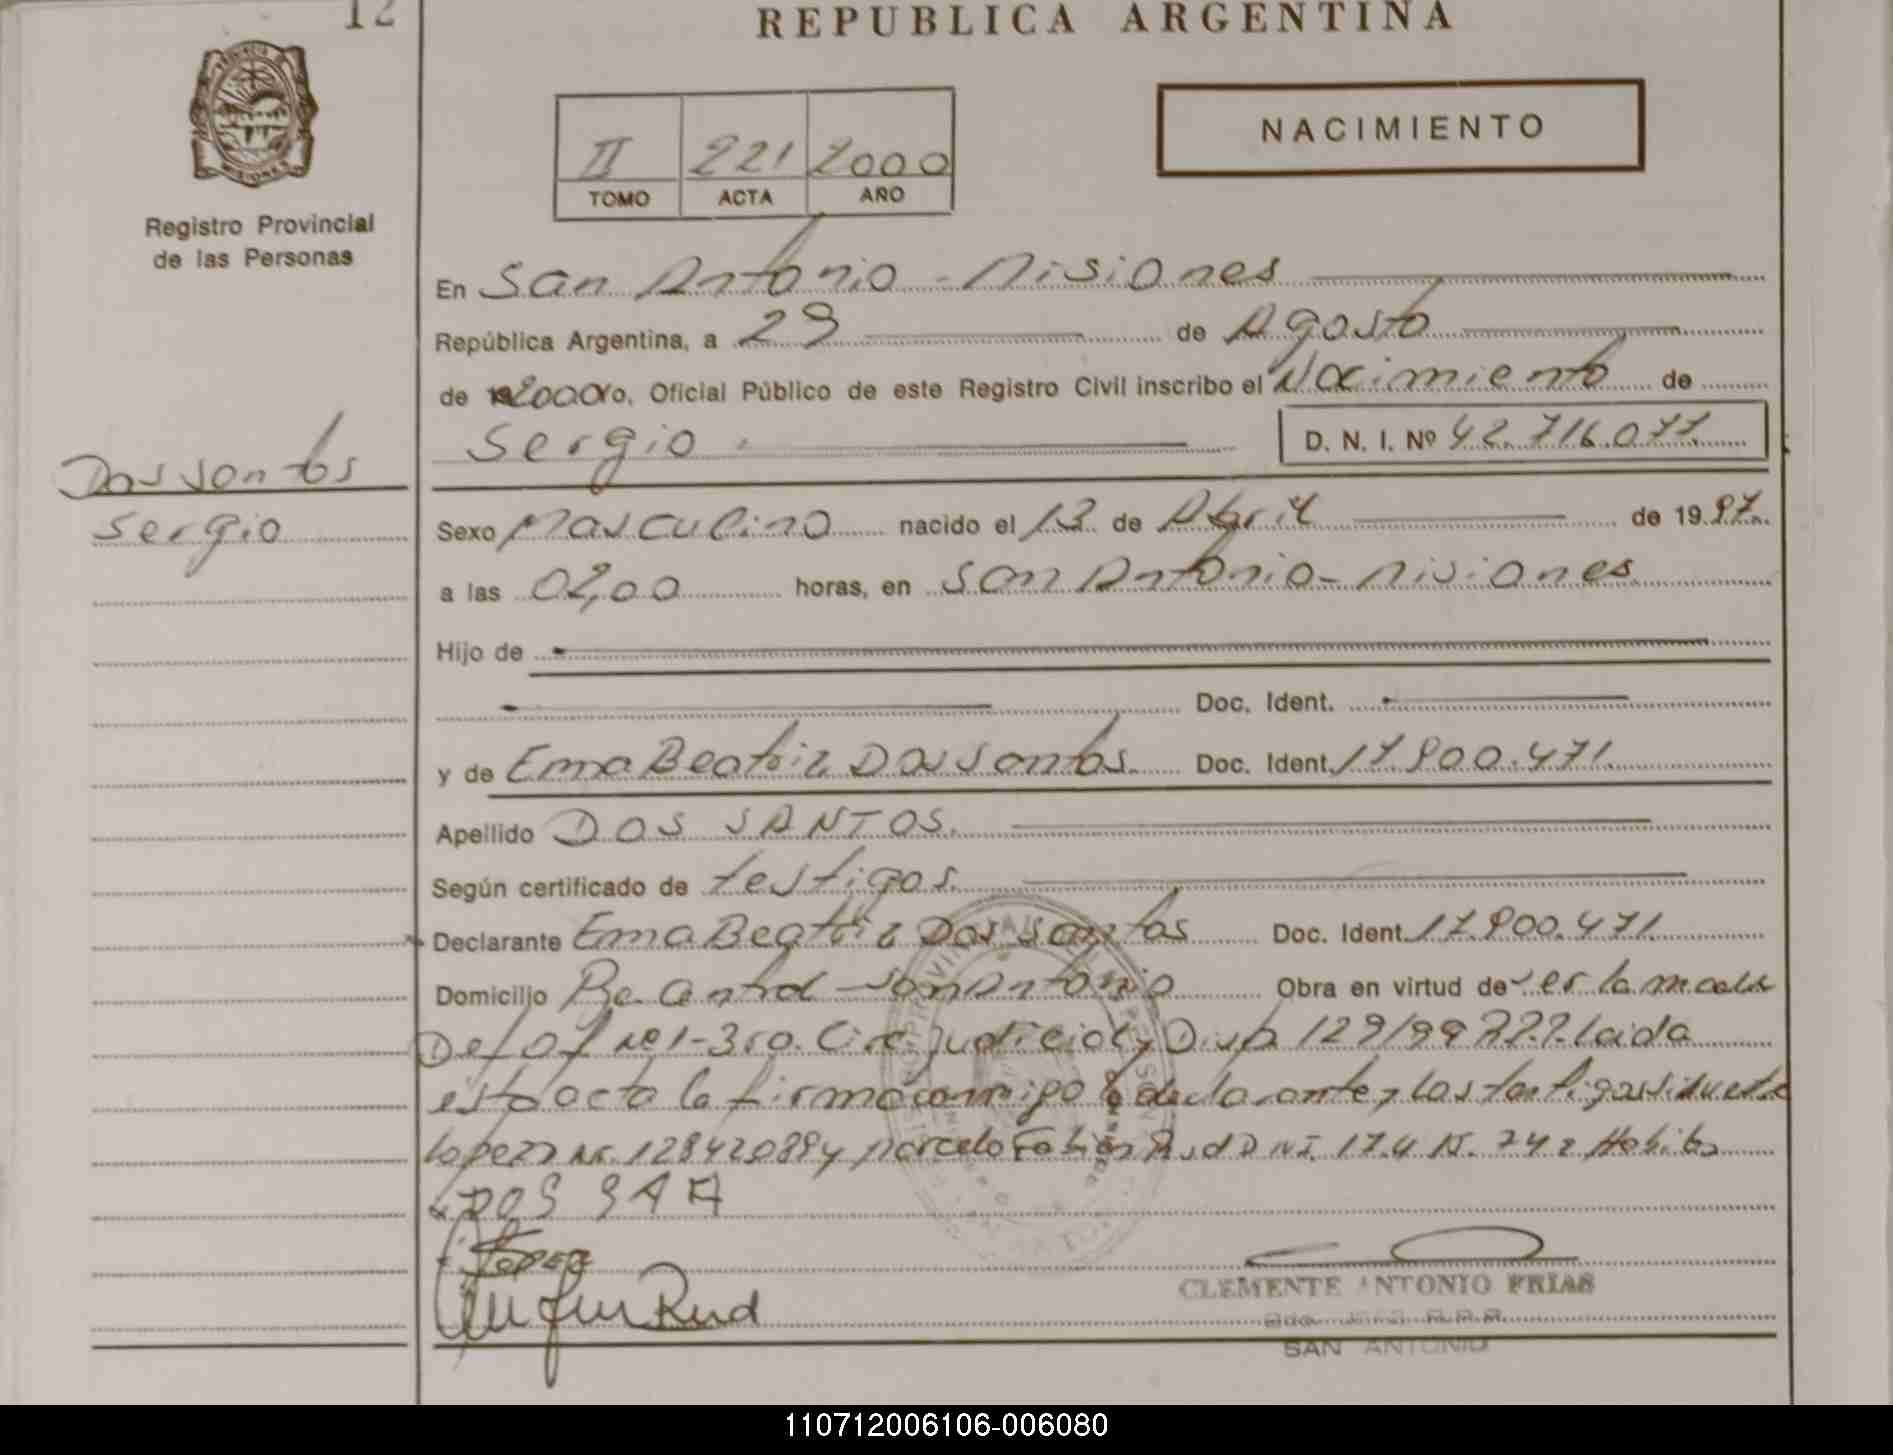 12
REPUBLICA ARGENTINA
PROVINCIA
MISIONES
Registro Provincial
de las Personas
II 221 2000
TOMO ACTA AÑO
NACIMIENTO
En San Antonio - Misiones
República Argentina, a 29 de Agosto
de 2000 Yo, Oficial Público de este Registro Civil inscribo el Nacimiento de
Sergio D. N. I. Nº 42.716.077
Dos santos
Sergio
Sexo Masculino nacido el 13 de Abril de 1997
a las 02,00 horas, en San Antonio - Misiones
Hijo de
Doc. Ident.
y de Ema Beatriz Dos Santos. Doc. Ident. 17.900.471.
Apellido DOS SANTOS.
Según certificado de testigos.
Declarante Ema Beatriz Dos Santos Doc. Ident. 17.900.471.
Domicilio San Antonio Obra en virtud de ser la madre
Def. Of. Nº 1-3ra. Circ. Judicial y Disp. 129/99 Leida
esta acta la firma conmigo la declarante y los testigos
Lopez y Marcelo Fabian Rud DNI. 17.415.742
DOS SAA
LOPEZ
Rud
CLEMENTE ANTONIO FRIAS
SAN ANTONIO
110712006106-006080